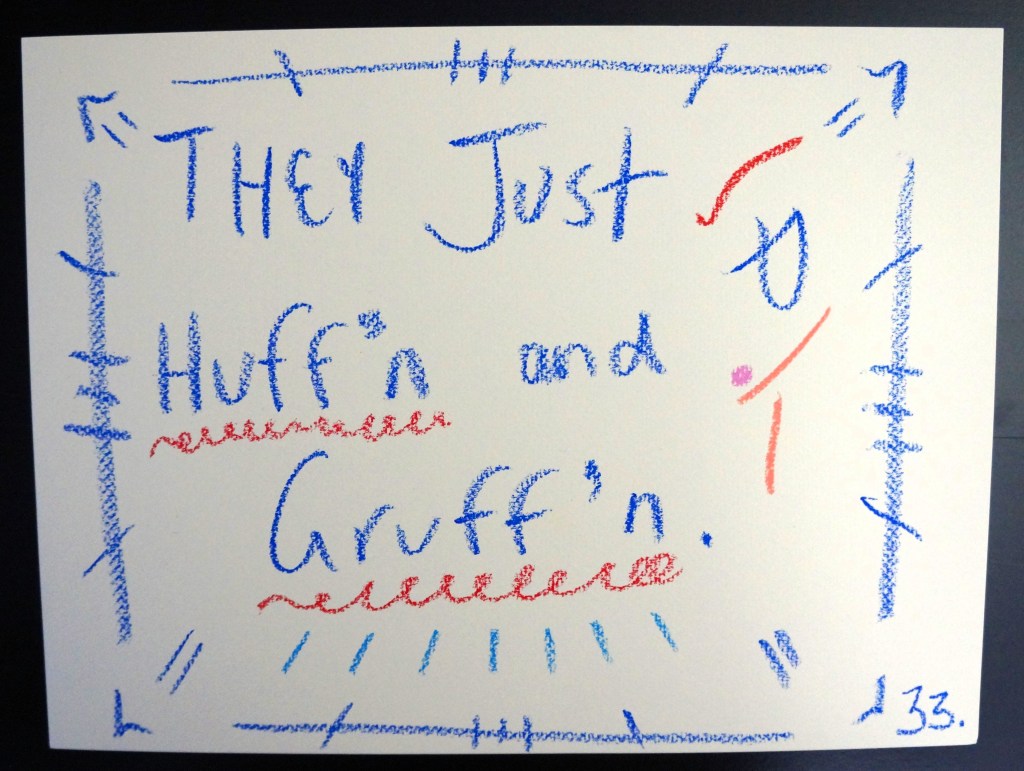 THEY Just
Huff'n and
Gruff'n.
33.